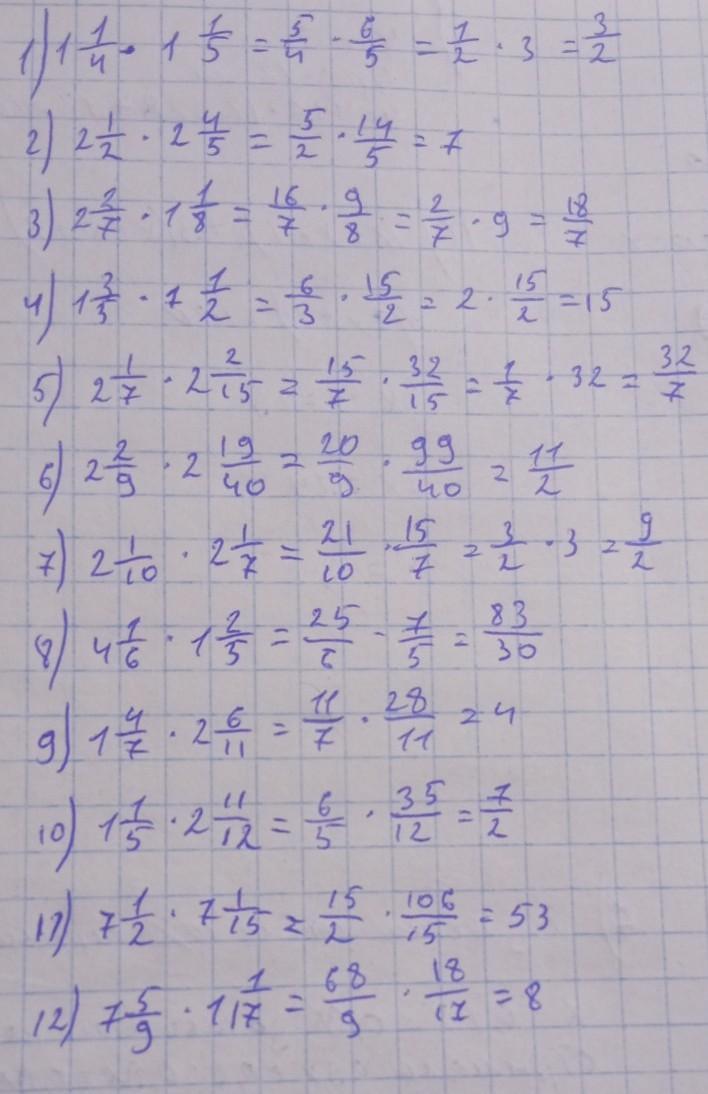 1) 1 1/4 · 1 1/5 = 5/4 · 6/5 = 1/2 · 3 = 3/2
2) 2 1/2 · 2 4/5 = 5/2 · 14/5 = 7
3) 2 2/7 · 1 1/8 = 16/7 · 9/8 = 2/7 · 9 = 18/7
4) 1 3/3 · 7 1/2 = 6/3 · 15/2 = 2 · 15/2 = 15
5) 2 1/7 · 2 2/15 = 15/7 · 32/15 = 1/7 · 32 = 32/7
6) 2 2/9 · 2 19/40 = 20/9 · 99/40 = 11/2
7) 2 1/10 · 2 1/7 = 21/10 · 15/7 = 3/2 · 3 = 9/2
8) 4 1/6 · 1 2/5 = 25/6 - 7/5 = 83/30
9) 1 4/7 · 2 6/11 = 11/7 · 28/11 = 4
10) 1 1/5 · 2 11/12 = 6/5 · 35/12 = 7/2
11) 7 1/2 · 7 1/15 = 15/2 · 106/15 = 53
12) 7 5/9 · 1 1/17 = 68/9 · 18/17 = 8